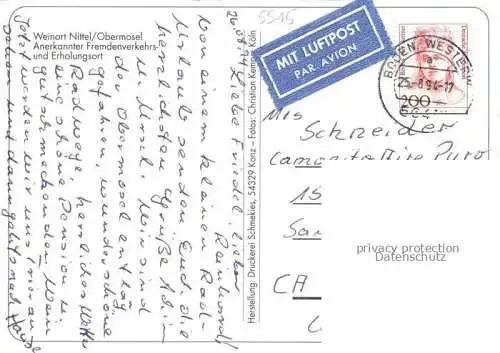 Weinort Nittel/Obermosel
Anerkannter Fremdenverkehrs-
und Erholungsort
5515
MIT LUFTPOST
PAR AVION
Deutsche
200
BODEN, WESTER
25.-8.94-17
26.08.94 Liebe Friedel, lieber
Reinhard!
Von einem kleinen Rad-
Urlaub senden Euch die
herzlichsten Grüße
u. Ursel. Wir sind
der Obermosel entlang
gefahren, wunderschöne
Radwege, herrliches Wetter
eine schöne Pension u.
gut schmeckenden Wein
Jetzt werden wir uns Trier an
sehen und dann geht's nach Hause
Herstellung: Druckerei Schmekies, 54329 Konz – Fotos: Christian Kemper, Köln
Schneider
15
San
CA
privacy protection
Datenschutz